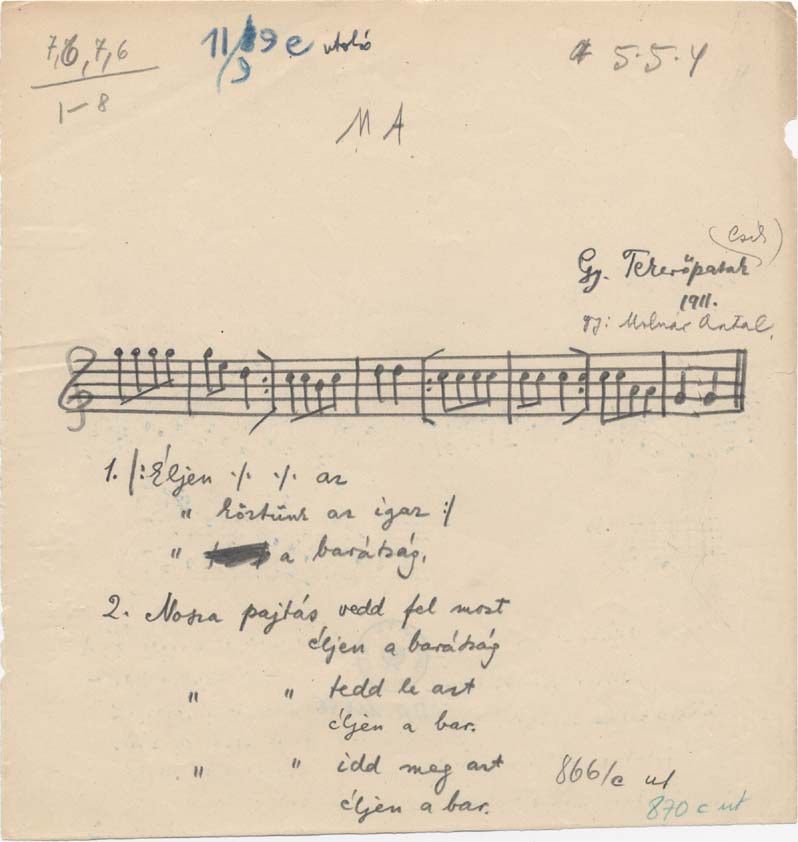 7, 6, 7, 6
1-8
11 9 e utolsó
/9
5.5.4
M A
(Csík)
Gy. Tekerőpatak
1911.
gy: Molnár Antal.
1. /: Éljen ·/. ·/. az
" köztünk az igaz :/
" a barátság,
2. Nosza pajtás vedd fel most
éljen a barátság
" " tedd le azt
éljen a bar.
" " idd meg azt
éljen a bar.
866/c ut
870 c ut